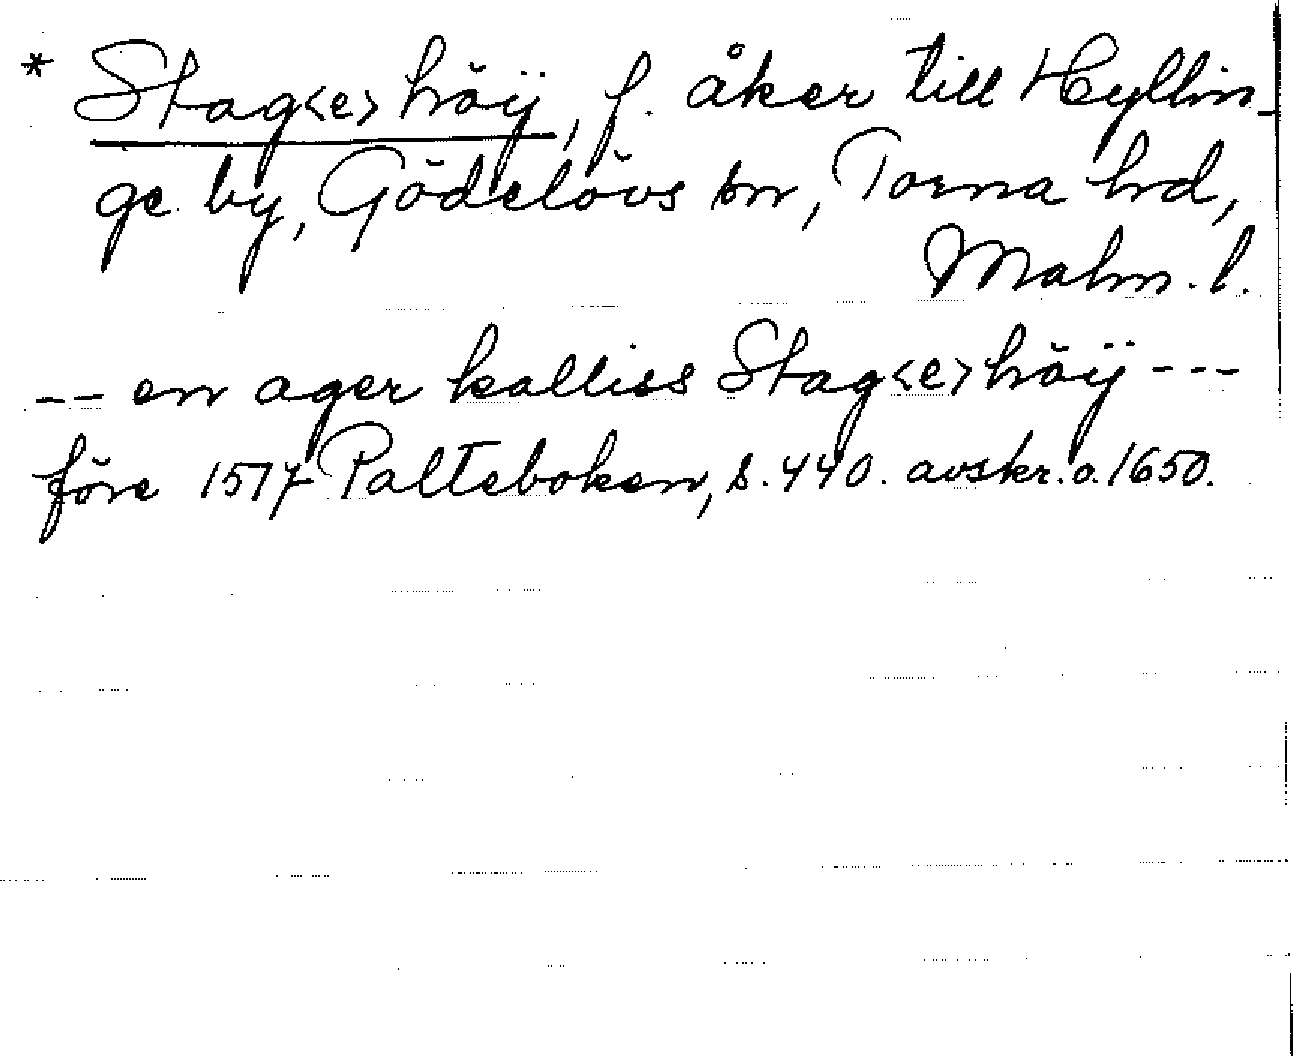 * Stag<e>höÿ, f. åker till Hyllin-
ge by, Gödelövs sn, Torna hd,
Malm. l.
-- en ager kalliss Stag<e>höÿ ---
före 1517 Palteboken, s. 440. avskr. o. 1650.